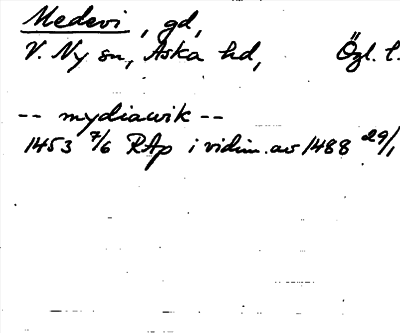 Medevi, gd,
V. Ny sn, Aska hd, Ögl. l.
-- mydiawik --
1453 7/6 RAp i vidim. av 1488 29/1